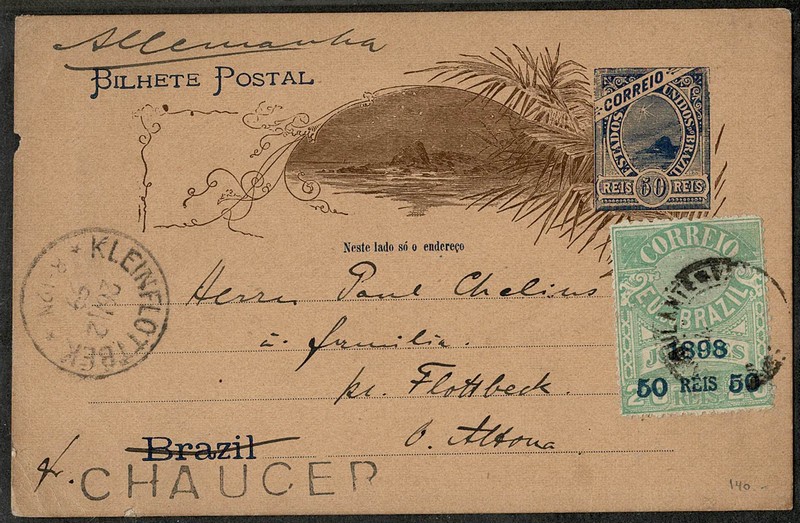 Allemanha
BILHETE POSTAL
CORREIO
ESTADOS UNIDOS DO BRAZIL
REIS 50 REIS
Neste lado só o endereço
CORREIO
E.U. BRAZIL
1898
50 REIS 50
KLEINFLOTTBEK
Herrn Paul Chelius
u. familie.
kl. Flottbeck.
b. Altona
Brazil
fr. CHAUCER
140.-